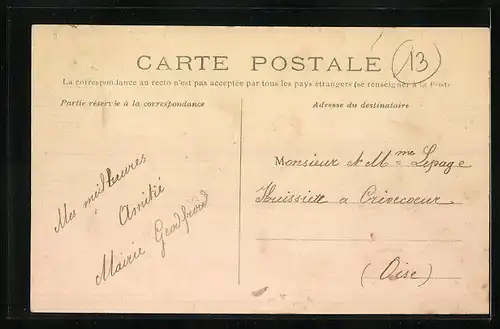 CARTE POSTALE
13
La correspondance au recto n'est pas acceptée par tous les pays étrangers (se renseigner à la Poste
Partie réservée à la correspondance
Adresse du destinataire
Monsieur et Mme Lepage
Huissier a Crèvecœur
(Oise)
Mes meilleures
Amitié
Mairie